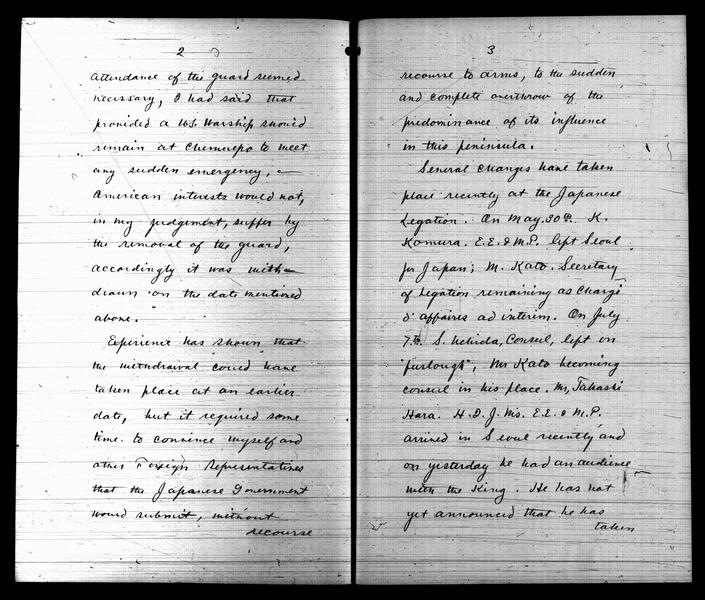 2
attendance of the guard seemed
necessary, I had said that
provided a U.S. Warship should
remain at Chemulpo to meet
any sudden emergency, —
American interests would not,
in my judgement, suffer by
the removal of the guard,
accordingly it was with-
drawn on the date mentioned
above.
Experience has shown that
the withdrawal could have
taken place at an earlier
date, but it required some
time to convince myself and
other Foreign Representatives
that the Japanese Government
would submit, without
recourse
3
recourse to arms, to the sudden
and complete overthrow of the
predominance of its influence
in this peninsula.
Several changes have taken
place recently at the Japanese
Legation. On May 30th. K.
Komura. E.E. & M.P. left Seoul
for Japan; M. Kato. Secretary
of Legation remaining as Chargé
d'affaires ad interim. On July
7th. S. Uchida, Consul, left on
"furlough", Mr Kato becoming
consul in his place. Mr, Takashi
Hara. H.I.J.Ms. E.E. & M.P.
arrived in Seoul recently and
on yesterday he had an audience
with the King. He has not
yet announced that he has
taken